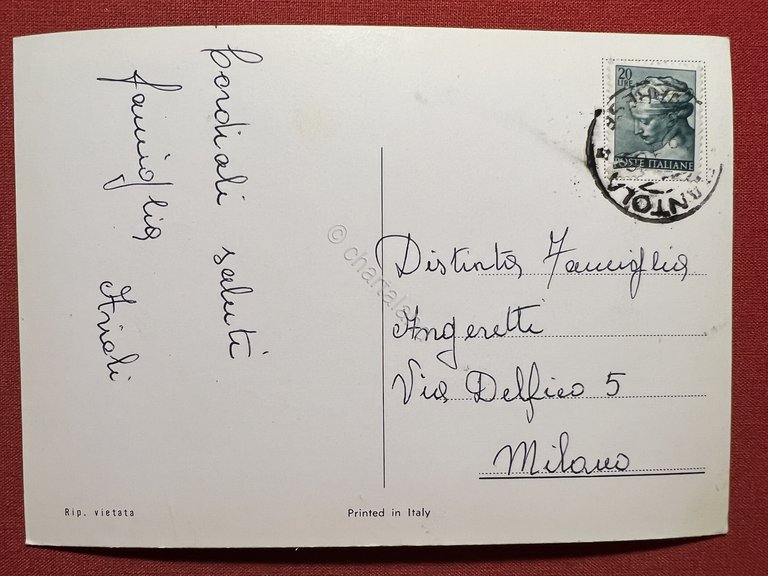 Cordiali saluti
famiglia Arioli
20
LIRE
POSTE ITALIANE
Distinta Famiglia
Angeretti
Via Delfico 5
Milano
Rip. vietata
Printed in Italy